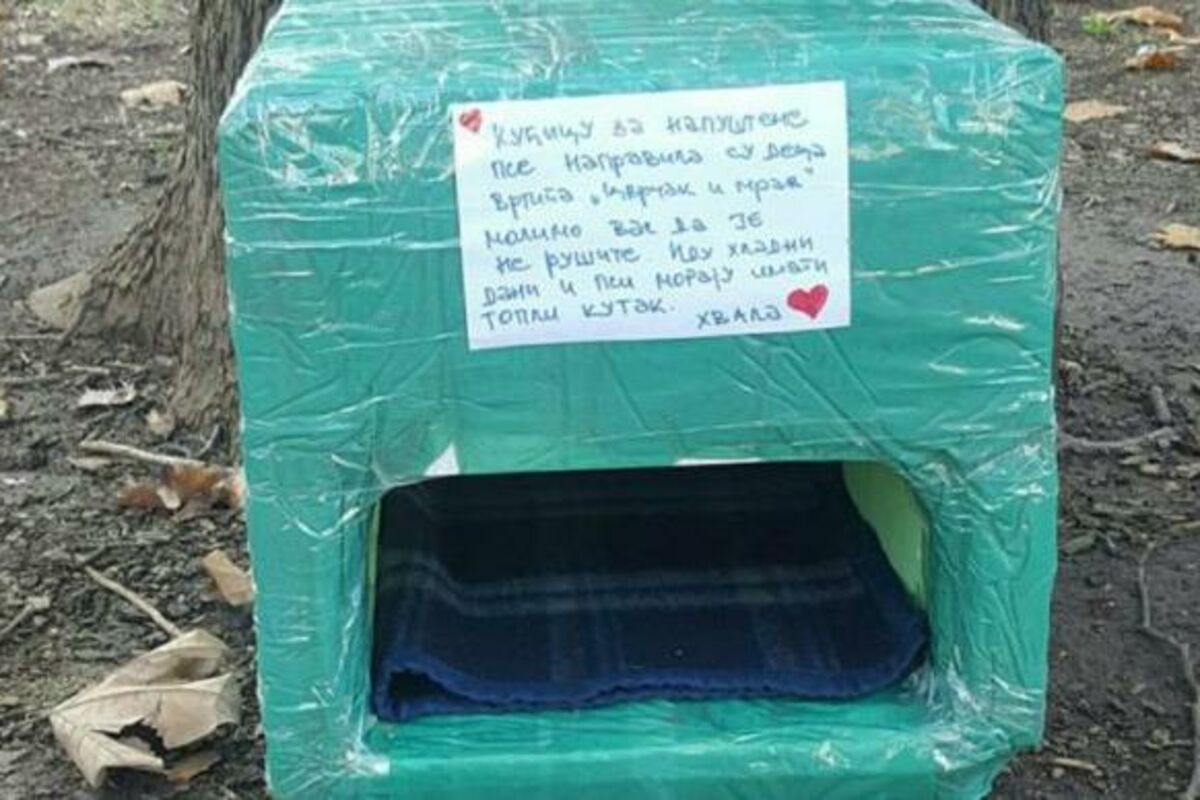 Кућицу за напуштене
псе направила су деца
вртића „Цврчак и мрав”
молимо вас да је
не рушите Иду хладни
дани и пси морају имати
топли кутак.
ХВАЛА